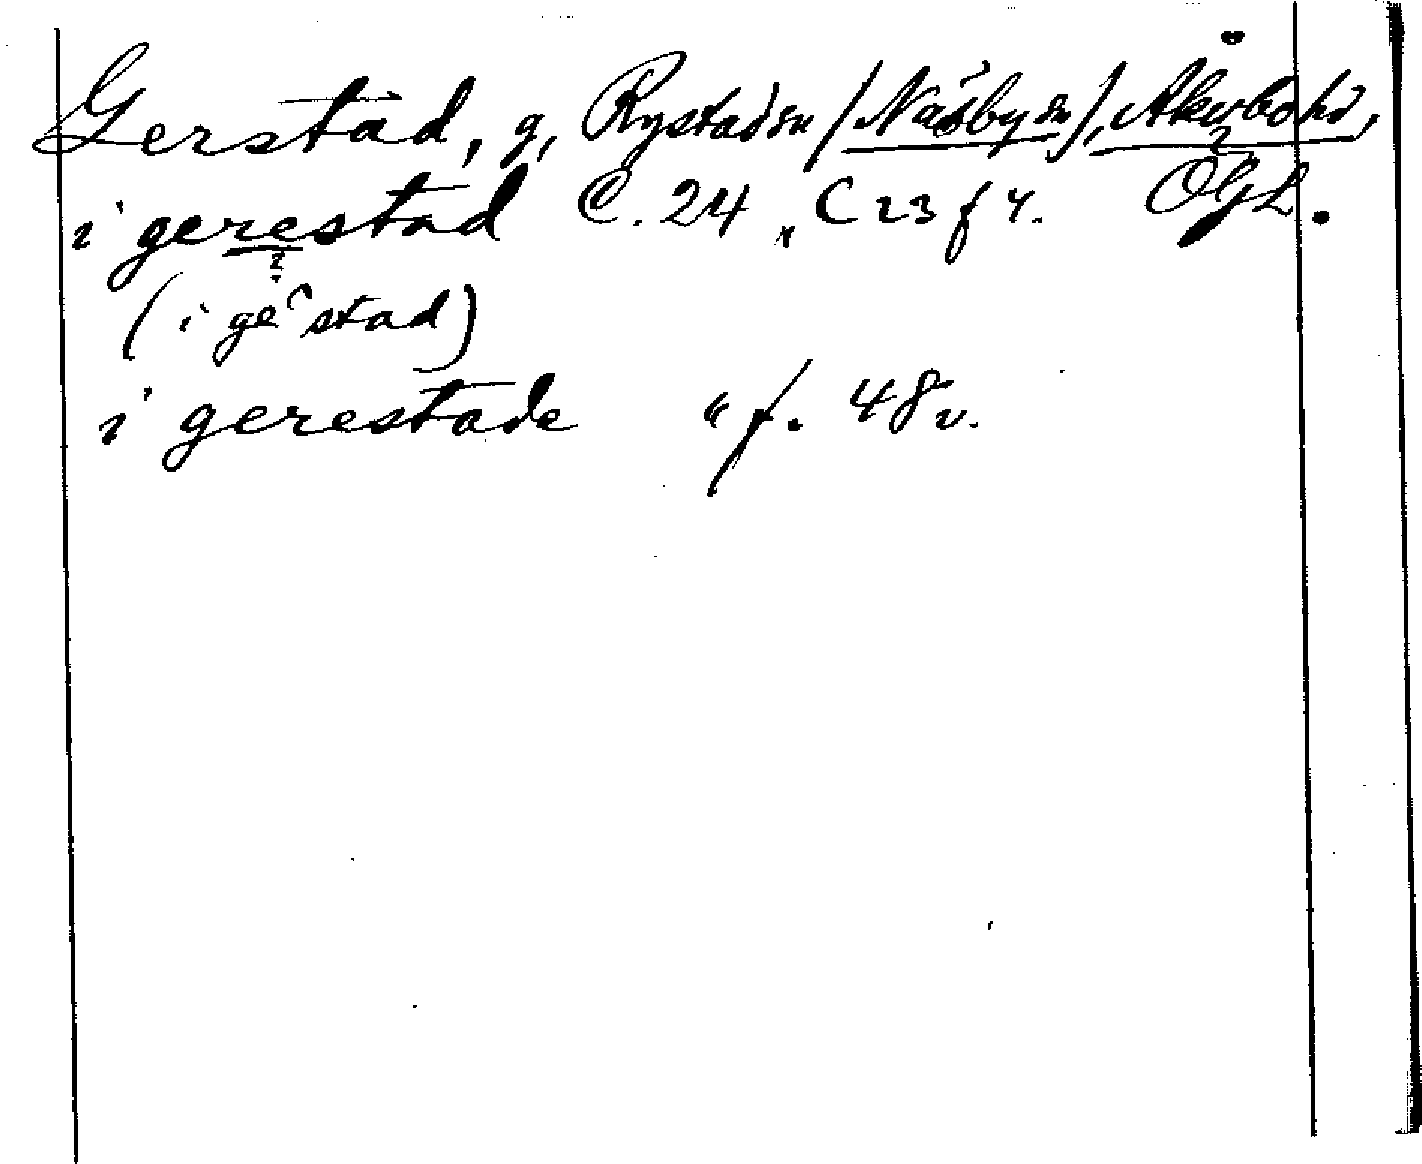 Gerstad, g, Rystad sn (Näsby sn), Åkerbo hd,
i gerestad C. 24 " C 23 f 4. ÖGL.
?
(i ge stad)
i gerestade " f. 48 v.